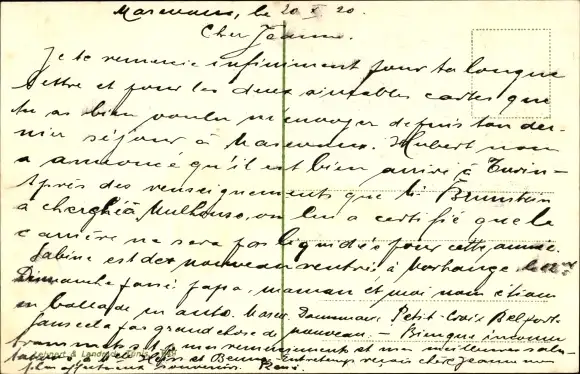 Masevaux, le 20 X 20.
Cher Jeanne.
Je te remercie infiniment pour ta longue
lettre et pour les deux aimables cartes que
tu as bien voulu m'envoyer depuis ton der-
nier séjour à Masevaux. Hubert nous
a annoncé qu'il est bien arrivé à Turin -
Après des renseignements que
à Mulhouse, on lui a certifié que la
carrière ne sera pas liquidée pour cette année.
Sabine est de nouveau rentrée à Morhange
Dimanche passé papa, maman et moi nous étions
en ballade en auto. Masev. Dannemarie. Petit-Croix Belfort
sans cela pas grand chose de nouveau. -
transmets mes remerciements et mes meilleures salu-
tations à et chère Jeanne mon
plus affectueux souvenir.
Lehnert & Landrock, Tunis